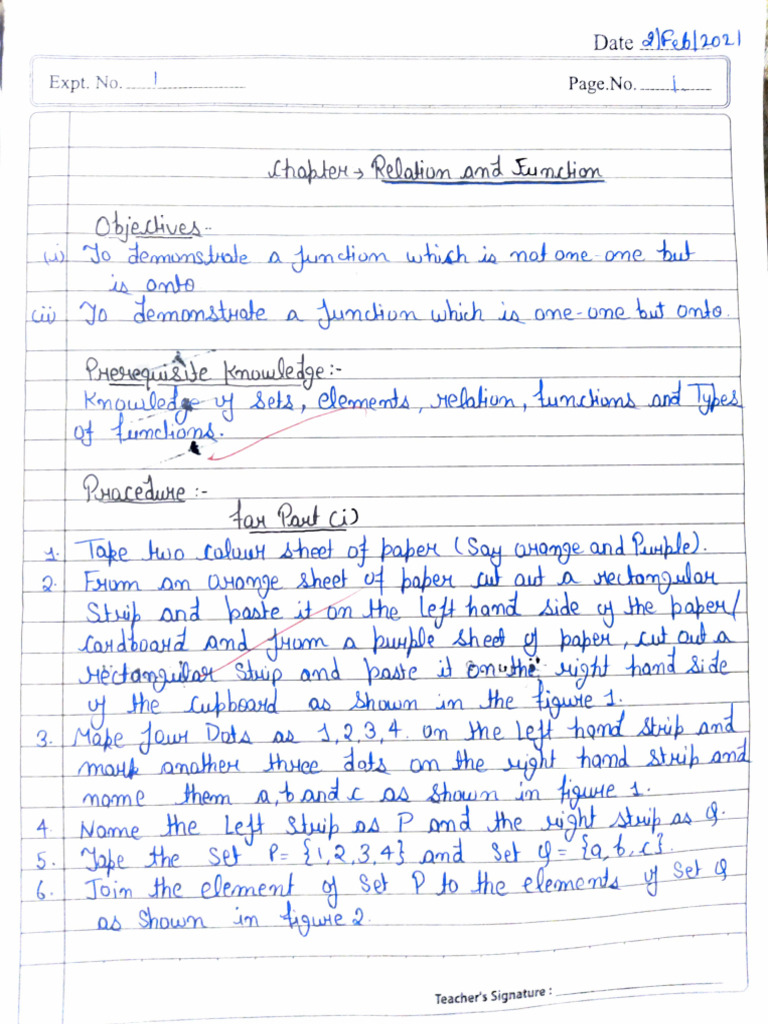 Date 2/Feb/2021
Expt. No. 1
Page.No. 1
Chapter → Relation and Function
Objectives -
(i) To demonstrate a function which is not one-one but
is onto
(ii) To demonstrate a function which is one-one but onto.
Prerequisite Knowledge :-
Knowledge of sets, elements, relation, functions and Types
of functions.
Procedure :-
for Part (i)
1. Take two colour sheet of paper (Say orange and Purple).
2. From an orange sheet of paper cut out a rectangular
Strip and paste it on the left hand side of the paper/
cardboard and from a purple sheet of paper, cut out a
rectangular strip and paste it on the right hand side
of the cupboard as shown in the figure 1.
3. Make four Dots as 1,2,3,4. on the Left hand strip and
mark another three dots on the right hand strip and
name them a, b and c as shown in figure 1.
4. Name the Left Strip as P and the right strip as Q.
5. Take the Set P = {1,2,3,4} and Set Q = {a,b,c}.
6. Join the element of Set P to the elements of Set Q
as shown in figure 2.
Teacher's Signature :